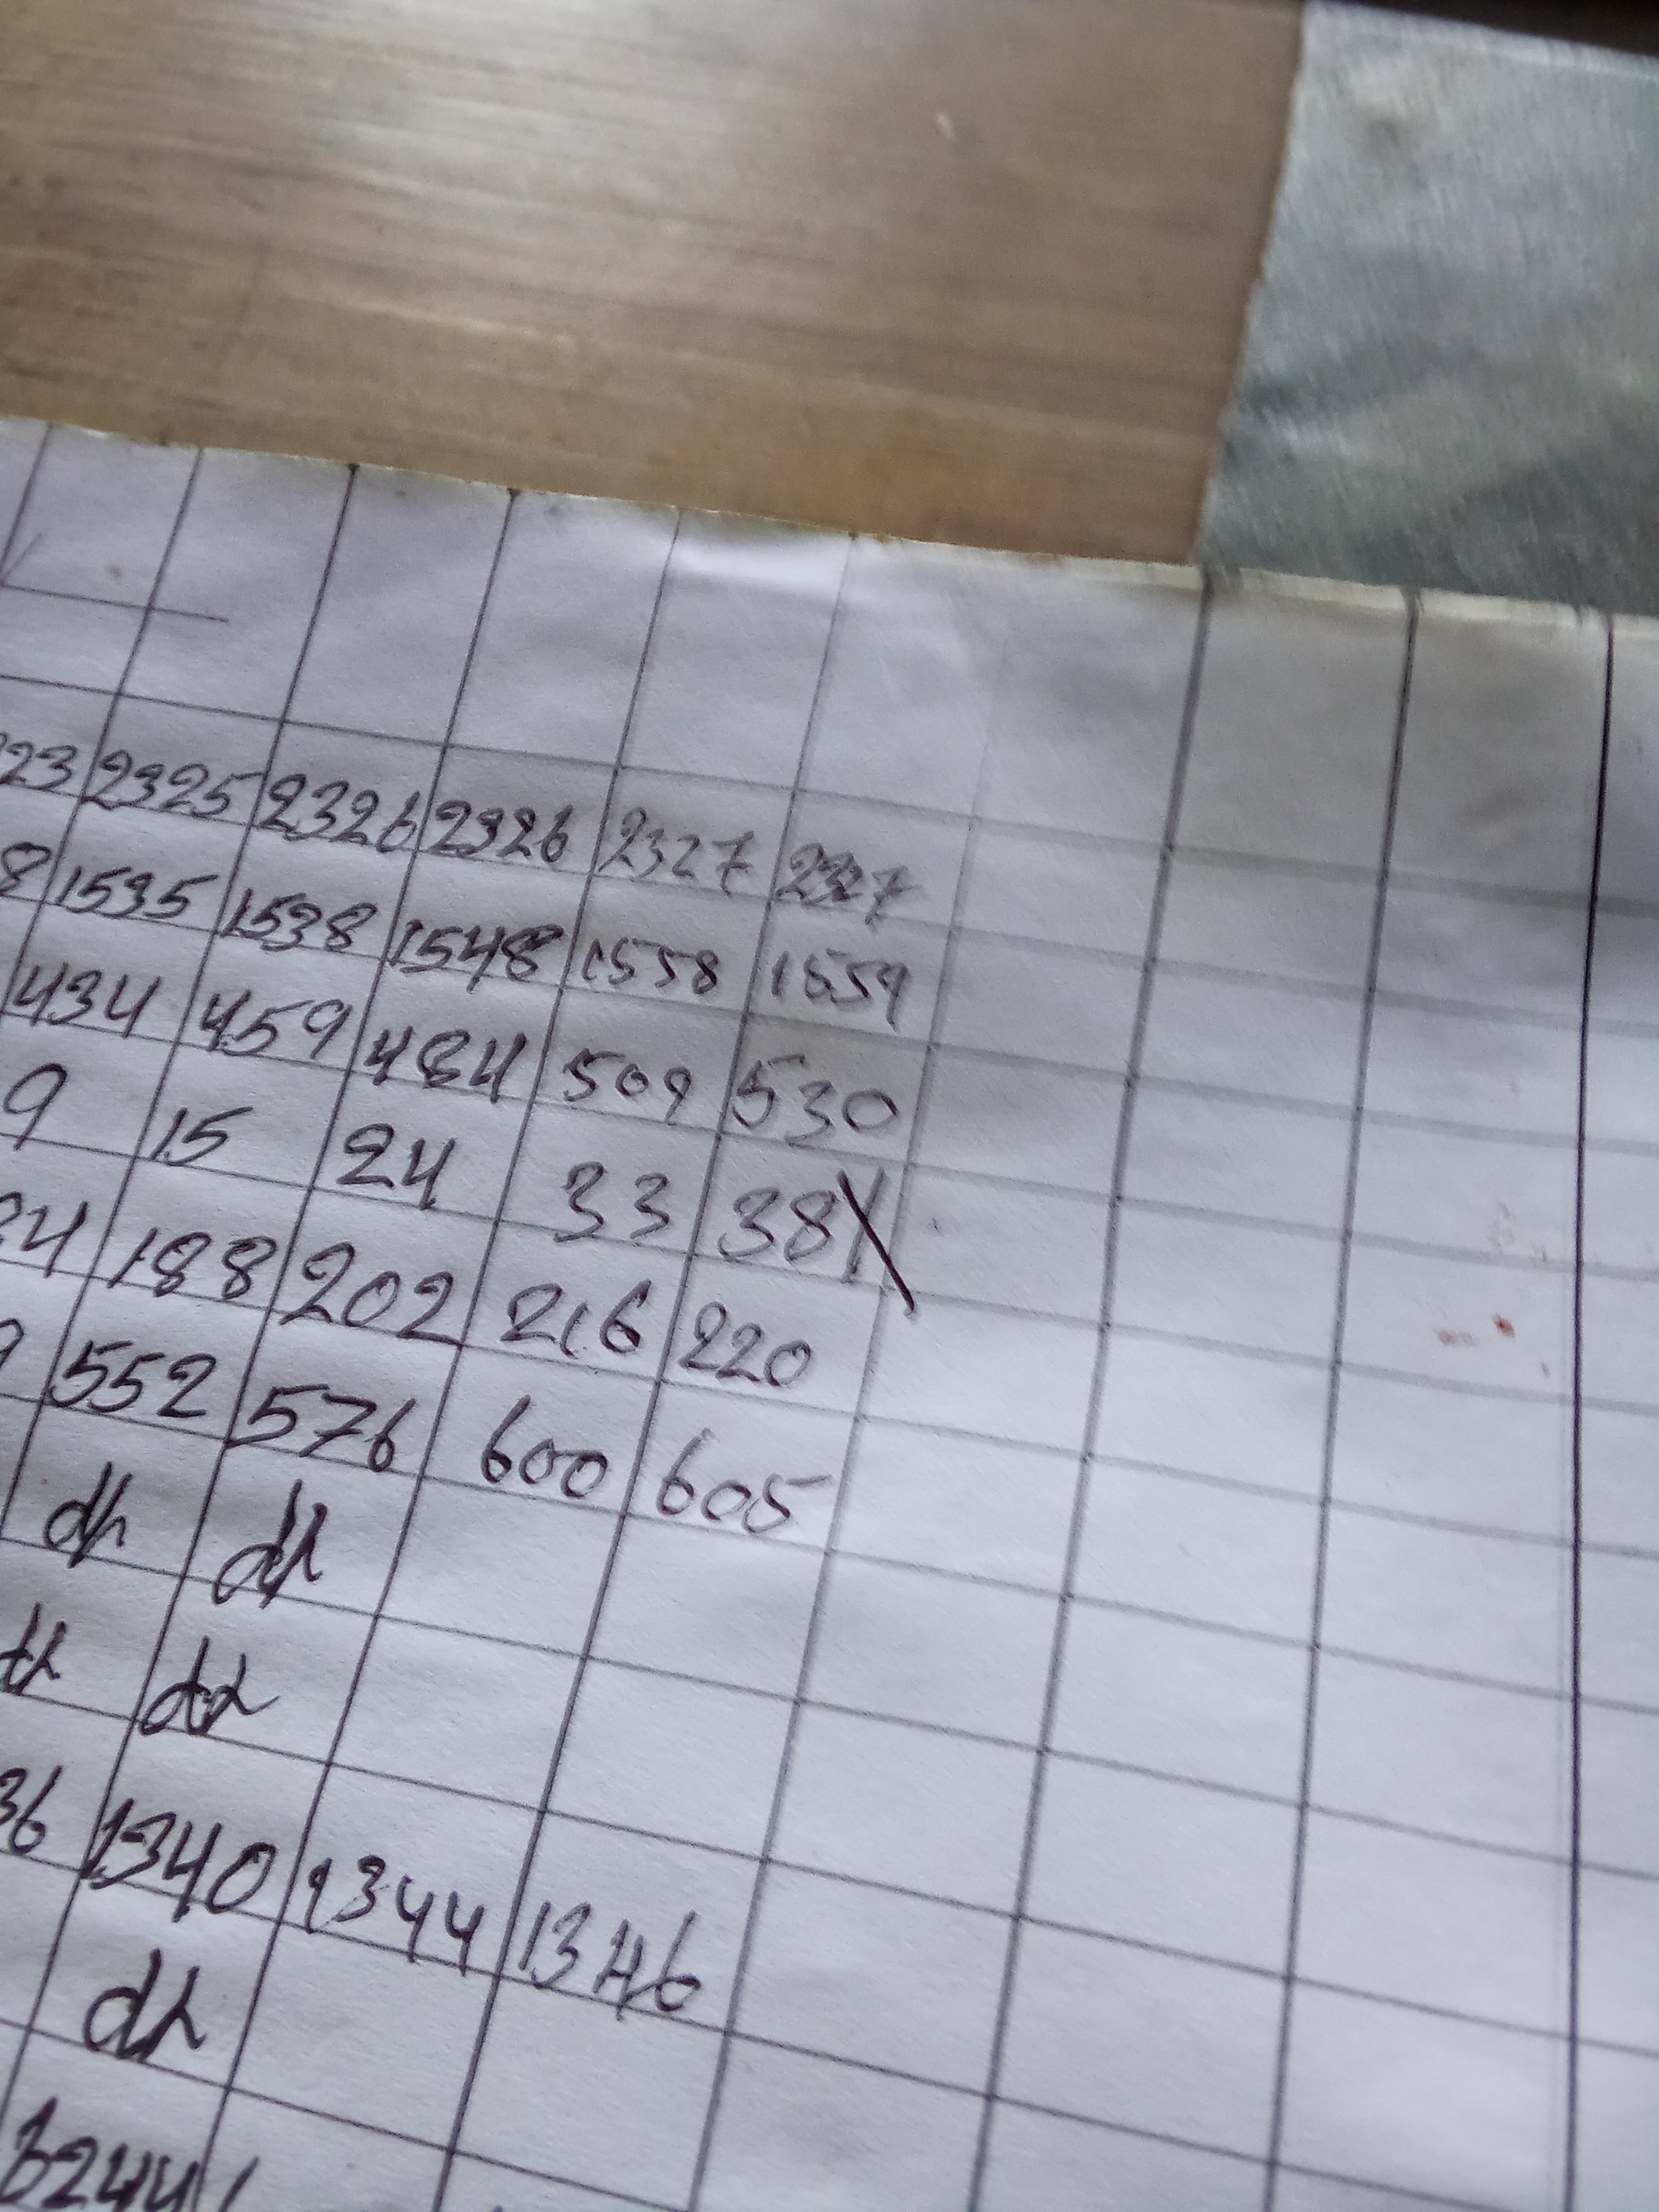 23 2325 2326 2326 2327 2327
8 1535 1538 1548 1558 1559
434 459 484 509 530
9 15 24 33 38
24 188 202 216 220
9 552 576 600 605
36 1340 1344 1346